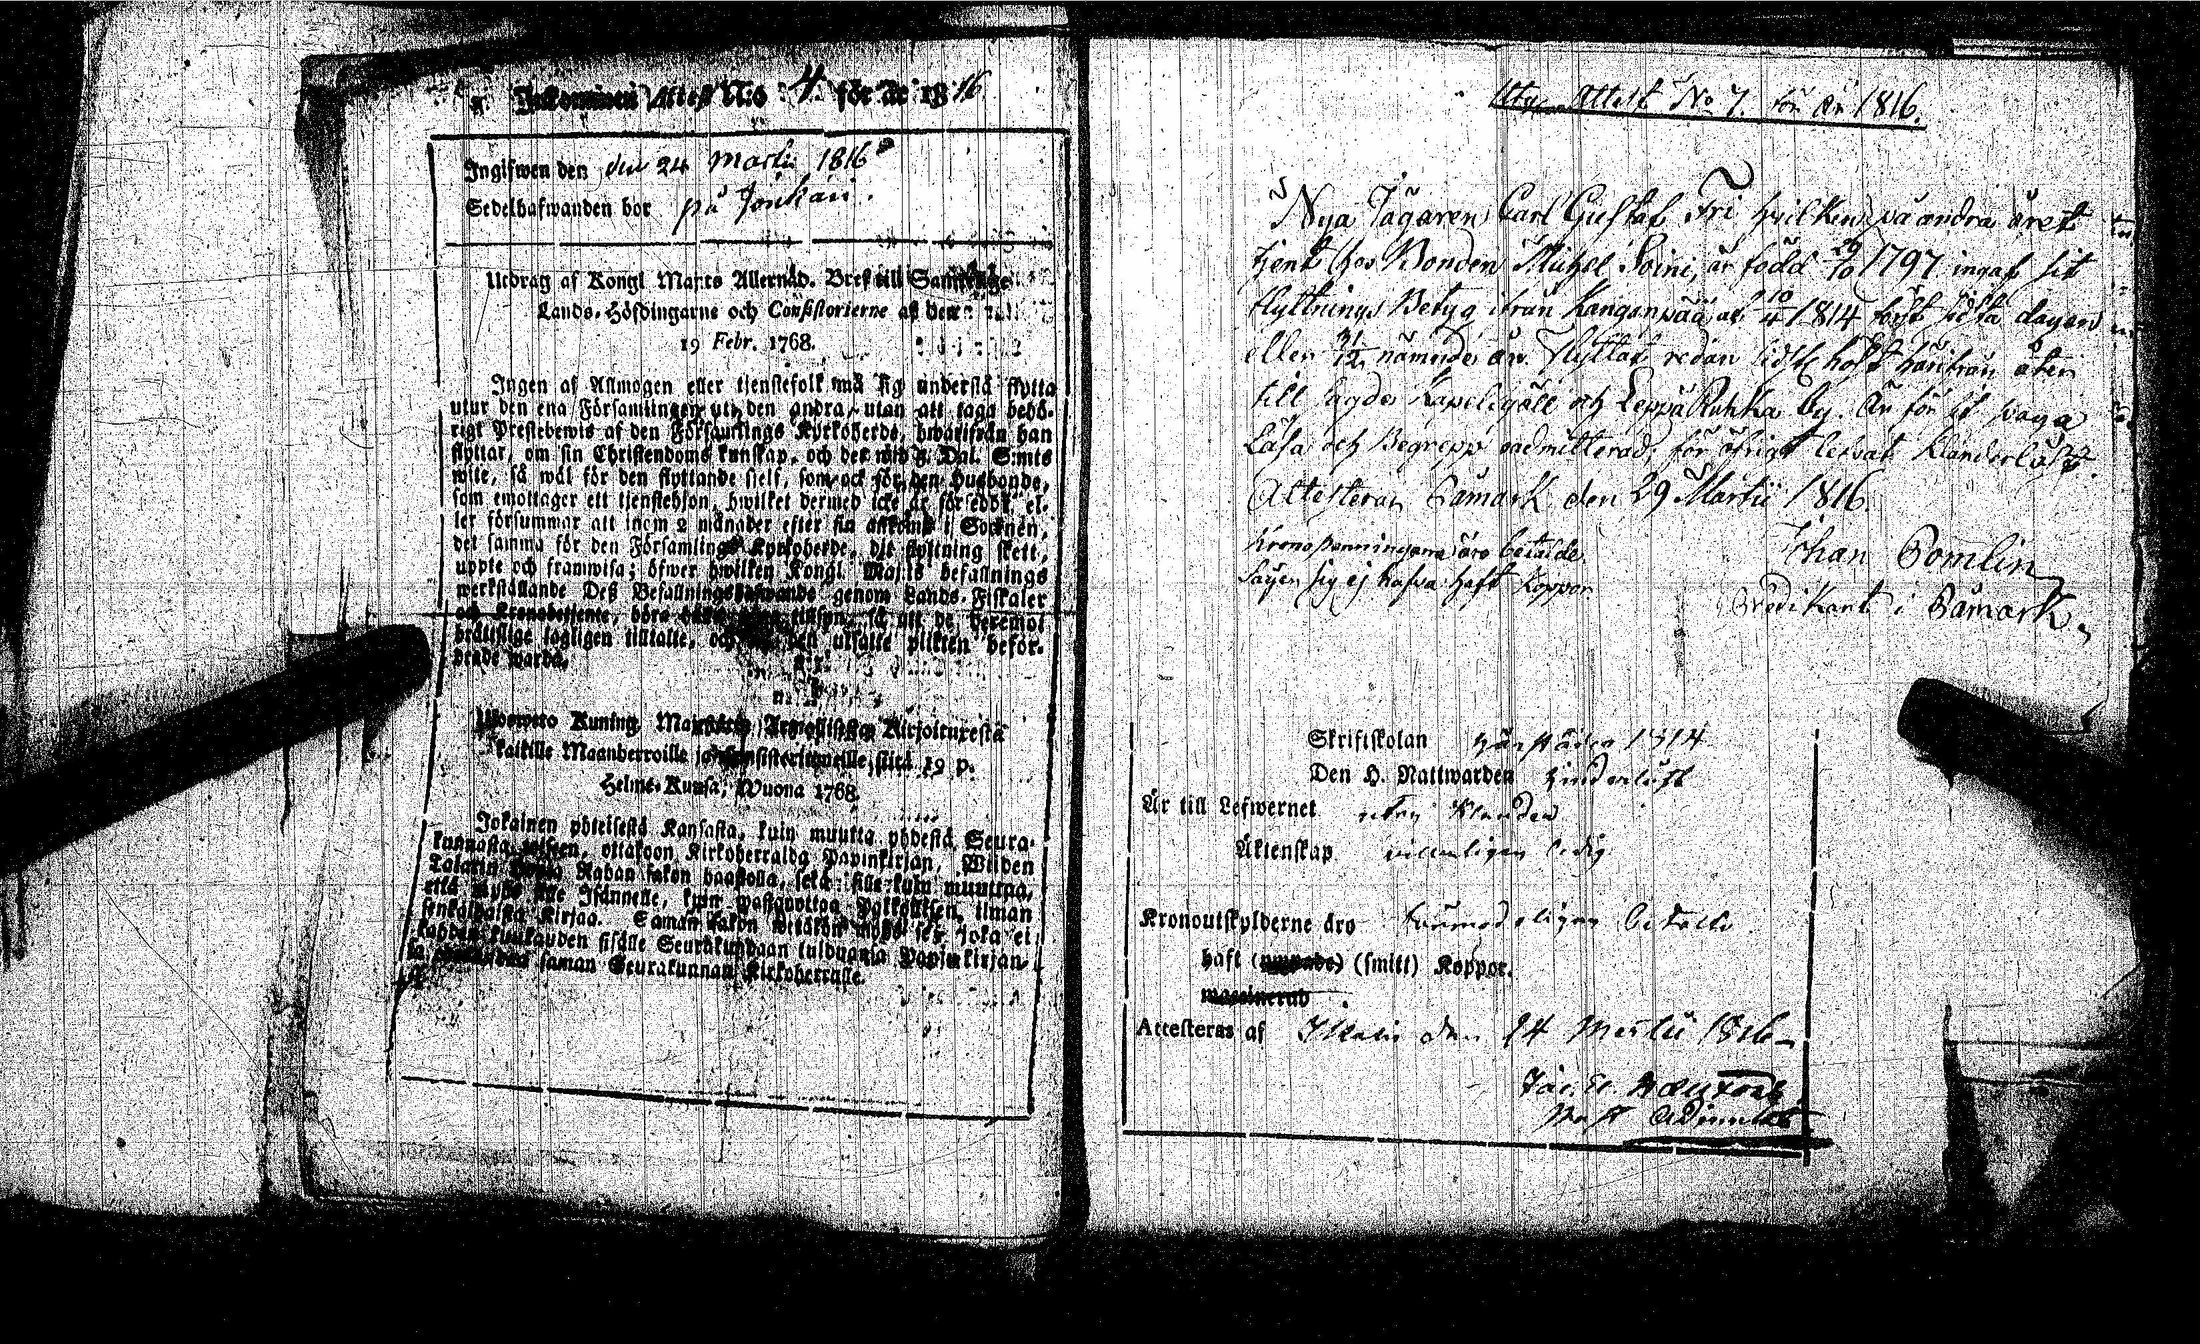 Inkommen Attest N:o 4. för år 1816
Ingifwen den den 24 Martii 1816
Sedelhafwanden bor på Jonkari.
Utdrag af Kongl Maj:ts Allernåd. Bref till Samtelige
Lands-Höfdingarne och Consistorierne af den
19 Febr. 1768.
Ingen af Allmogen eller tjenstefolk må sig understå flytta
utur den ena Församlingen uti den andra, utan att taga behö-
rigt Prestebewis af den Församlings Kyrkoherde, hwarifrån han
flyttar, om sin Christendoms kunskap, och det wid 2 Dal. S:mts
wite, så wäl för den flyttande sielf, som ock för den Husbonde,
som emottager ett tjenstehjon, hwilket dermed icke är försedt, el-
ler försummar att inom 2 månader efter sin ankomst i Soknen,
det samma för den Församlings Kyrkoherde, dit flyttning skett,
uppte och framwisa; öfwer hwilken Kongl Maj:ts befallnings
werkställande Deß Befallningshafwande genom Lands-Fiskaler
och Kronobetjente, böra tillsyn, så att de deremot
bråttslige lagligen tilltalte, och utsatte plikten befor-
drade warda.
Uloswetto Kuning. Majestetin Armollisesta Kirjoituxesta
kaikille Maanherroille ja Consistoriumeille, siitä 19 p.
Helme-Kuusa, Wuona 1768.
Jokainen yhteisestä Kansasta, kuin muutta yhdestä Seura-
kunnasta toiseen, ottakoon Kirkoherralda Papinkirjan, Wiiden
Talarin Rahan sakon haastolla, sekä sille kuin muuttaa,
että myös sille Isännelle, kuin wastaanottaa Palkollisen ilman
senkaldaista Kirjaa. Saman sakon wetäkön myös se, joka ei
kahden kuukauden sisälle Seurakundaan tulduansa Papinkirjan-
sa saman Seurakunnan Kirkoherralle.
Utg. Attest No 7. för år 1816.
Nya Jägaren Carl Gustaf Fri hvilken på andra året
tjent hos Bonden Michel Soini, är född 29/10 1797 ingaf sit
flyttnings Betyg ifrån Kanganpää af 10/4 1814 först sidsta dagen
eller 31/12 nämnde år. Flyttat redan sidstl. höst härifrån åter
till sagde Kapellgäll och Leppä Ruhka by. Är för sit swaga
Läsa och Begrepp oadmitterad; för öfrigt lefvat klanderlöst.
Attesteras Påmark den 29 Martii 1816.
Kronopenningarna äro betalde.
Säger sig ej hafva haft Koppor
Johan Pomlin
Predikant i Påmark.
Skriftskolan härstädes 1814
Den H. Nattwarden hinderlöst
Är till Lefwernet utan klander
Äktenskap ledig
Kronoutskylderne äro förmodeligen betalte
haft (smitt) Koppor.
Attesteras af den 24 Martii 1816